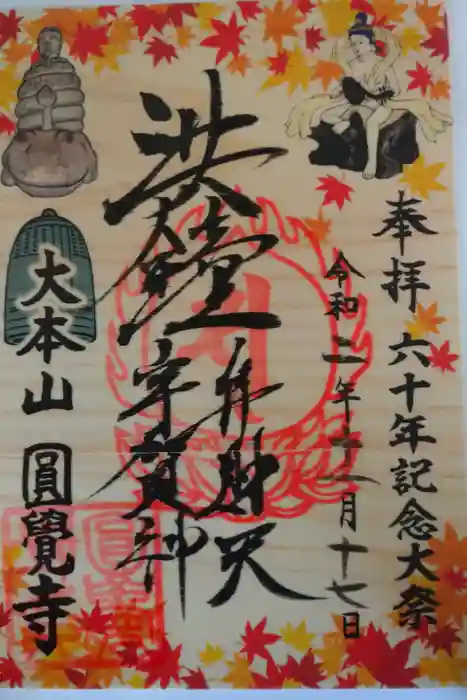 奉拝 六十年記念大祭
令和二年十一月十七日
洪鐘
弁財天
宇賀神
大本山 圓覺寺